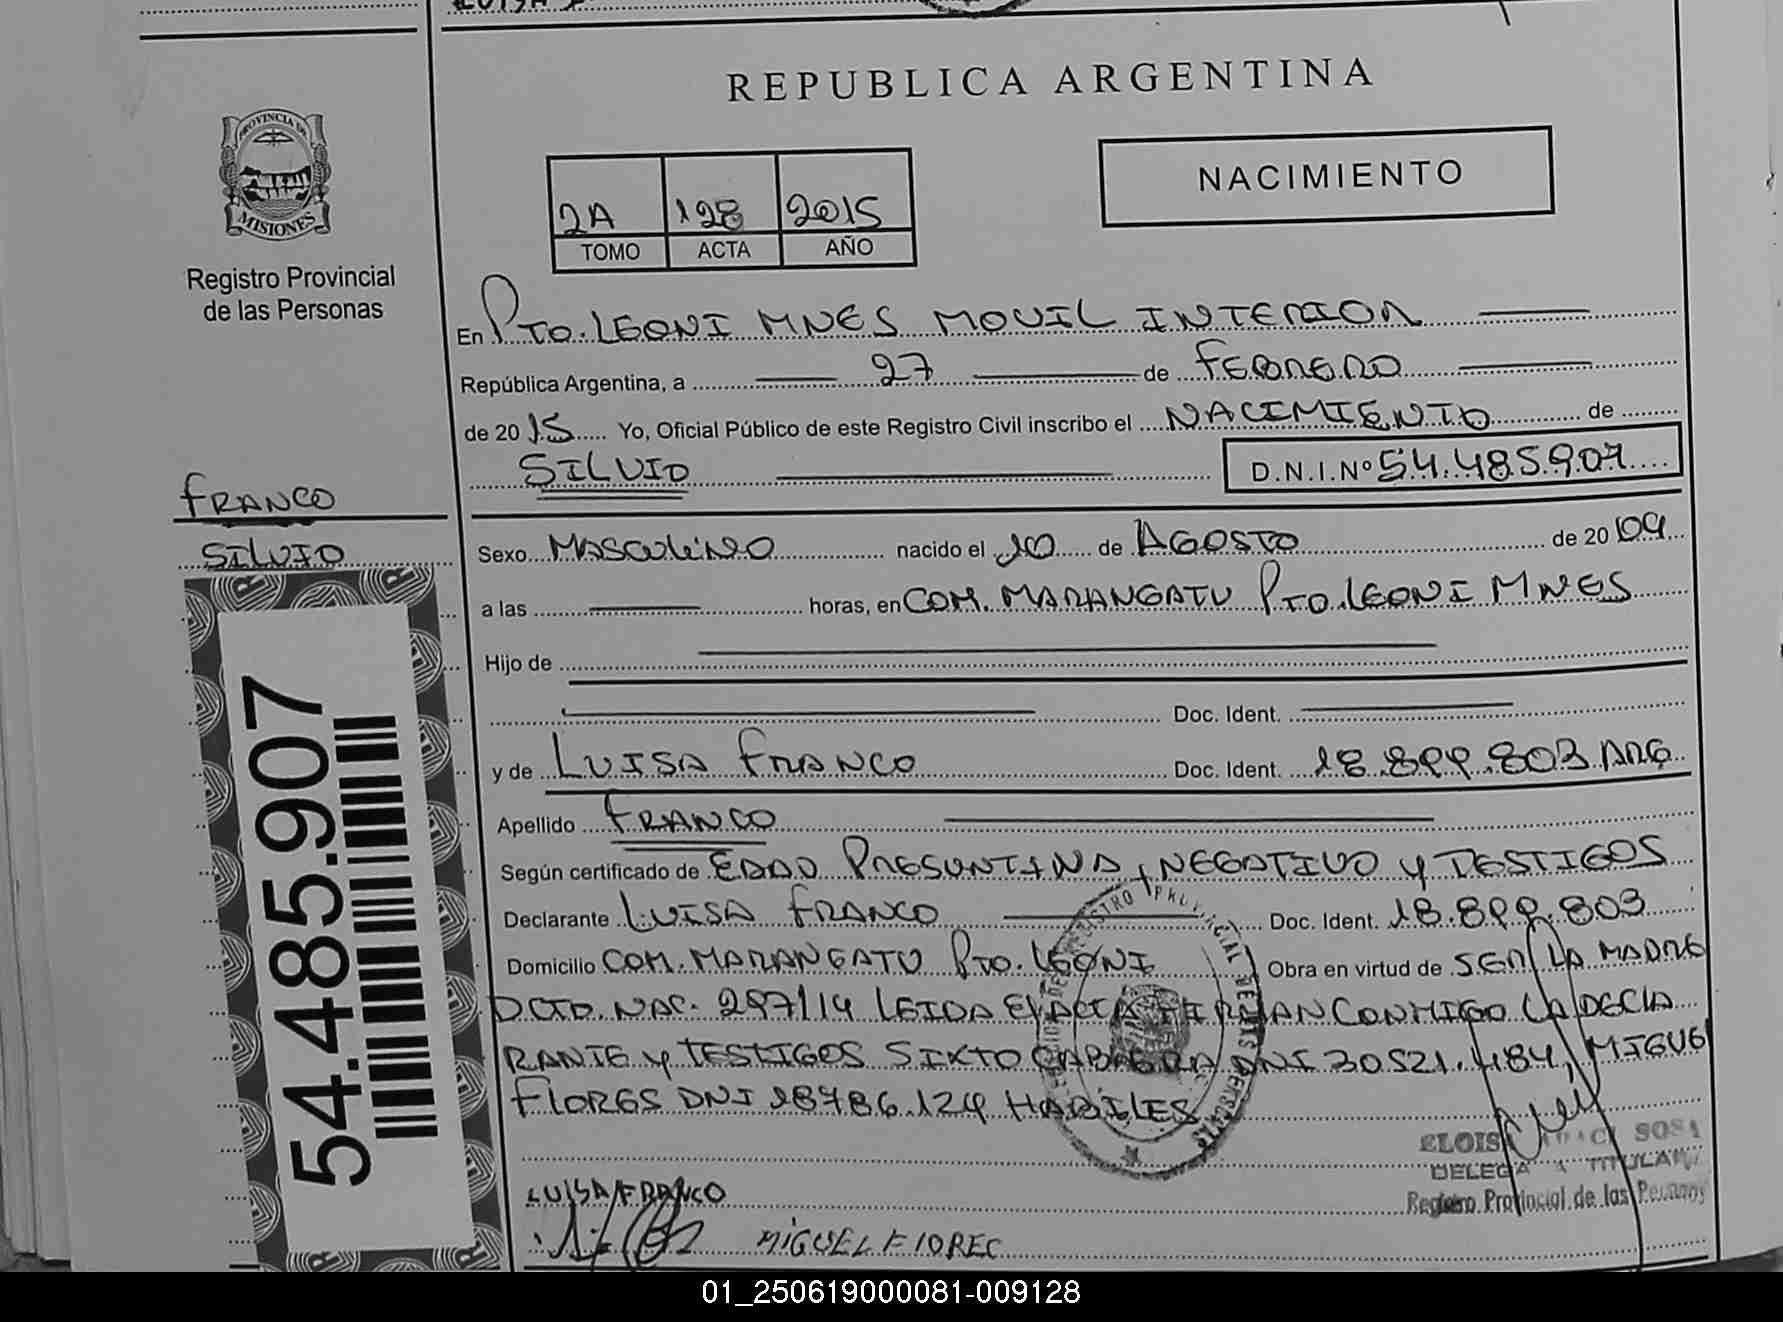 REPUBLICA ARGENTINA
PROVINCIA DE
MISIONES
Registro Provincial
de las Personas
NACIMIENTO
2A 128 2015
TOMO ACTA AÑO
En PTO. LEONI MNES MOVIL INTERIOR
República Argentina, a 27 de FEBRERO
de 2015 Yo, Oficial Público de este Registro Civil inscribo el NACIMIENTO de
SILVIO D.N.I.Nº 54.485.907
FRANCO
SILVIO
Sexo MASCULINO nacido el 10 de AGOSTO de 2009
a las horas, en COM. MARANGATU PTO. LEONI MNES
Hijo de
Doc. Ident.
y de LUISA FRANCO Doc. Ident. 18.899.803 ARG
Apellido FRANCO
Según certificado de EDAD PRESUNTIVA, NEGATIVO y TESTIGOS
Declarante LUISA FRANCO Doc. Ident. 18.899.803
Domicilio COM. MARANGATU PTO. LEONI Obra en virtud de SER LA MADRE
DCTO. NAC. 297/14 LEIDA EL ACTA FIRMAN CONMIGO LA DECLA
RANTE y TESTIGOS SIXTO CABRERA DNI 30521.484, MIGUEL
FLORES DNI 18786.124 HABILES
54.485.907
SOSA
DELEGADA TITULAR
Registro Provincial de las Personas
LUISA FRANCO
MIGUEL FLOREC
01_250619000081-009128